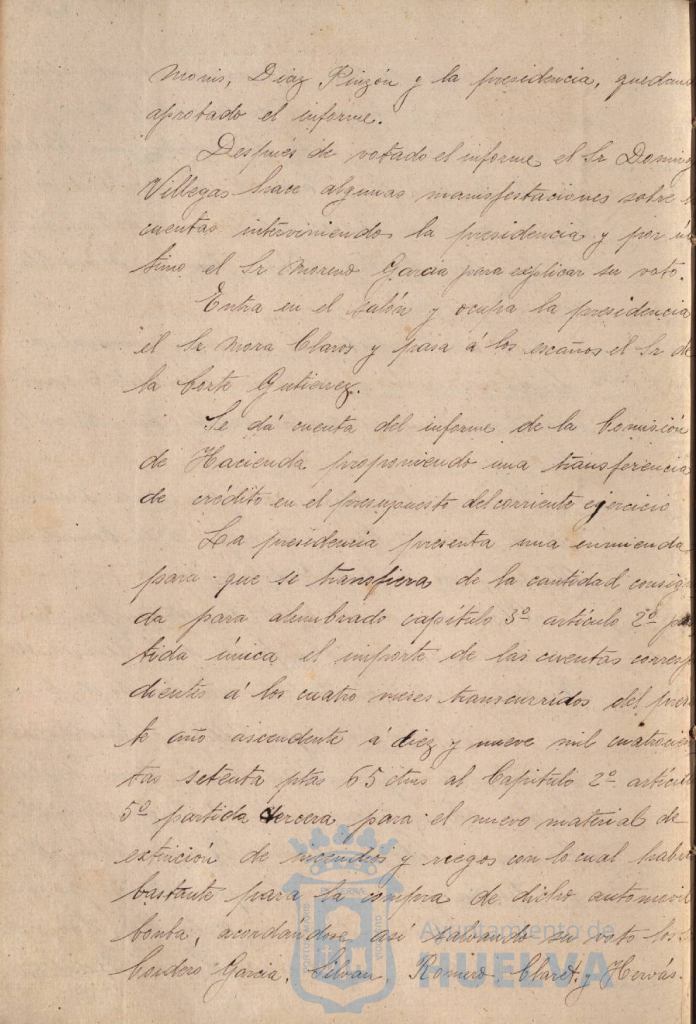 Monis, Diaz Pinzón y la presidencia, quedand
aprobado el informe.
Después de votado el informe el Sr Doming
Villegas hace algunas manisfestaciones sobre
cuentas interviniendo la presidencia y por ul
timo el Sr Moreno Garcia para explicar su voto.
Entra en el salón y ocupa la presidencia
el Sr Mora Claros y pasa á los escaños el Sr de
la Corte Gutierrez.
Se dá cuenta del informe de la Comisión
de Hacienda proponiendo una transferencia
de crédito en el presupuesto del corriente ejercicio
La presidencia presenta una enmienda
para que se transfiera de la cantidad consig
da para alumbrado capítulo 3º artículo 2º par
tida única el importe de las cuentas corresp
dientes á los cuatro meses transcurridos del presen
te año ascendente á diez y nueve mil cuatrocien
tas setenta ptas 65 ctms al Capitulo 2º artícul
5º partida tercera para el nuevo material de
extinción de incendios y riegos con lo cual habrá
bastante para la compra de dicho automovil
bomba, acordándose así salvando su voto los S
Cordero Garcia, Silvan, Romero, Claret, y Hervás.
Ayuntamiento de
HUELVA